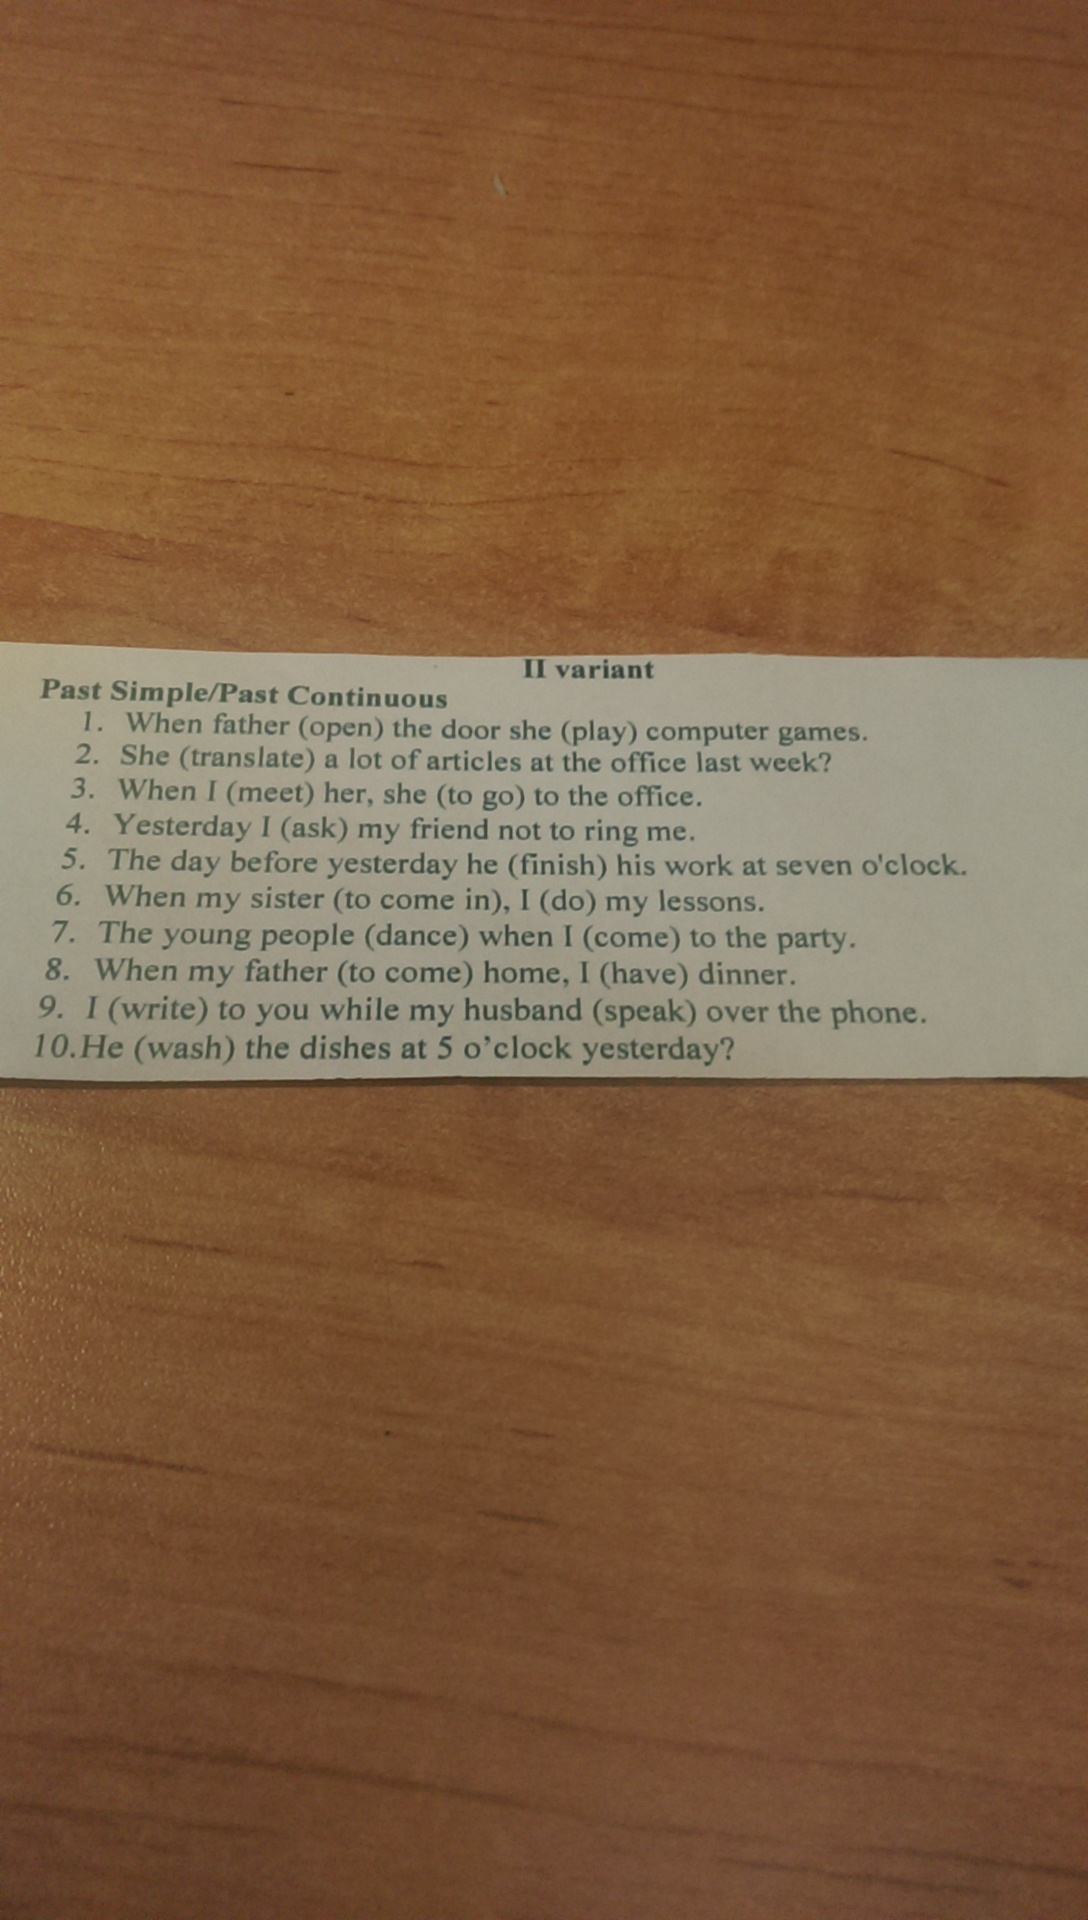 II variant
Past Simple/Past Continuous
1. When father (open) the door she (play) computer games.
2. She (translate) a lot of articles at the office last week?
3. When I (meet) her, she (to go) to the office.
4. Yesterday I (ask) my friend not to ring me.
5. The day before yesterday he (finish) his work at seven o'clock.
6. When my sister (to come in), I (do) my lessons.
7. The young people (dance) when I (come) to the party.
8. When my father (to come) home, I (have) dinner.
9. I (write) to you while my husband (speak) over the phone.
10.He (wash) the dishes at 5 o’clock yesterday?